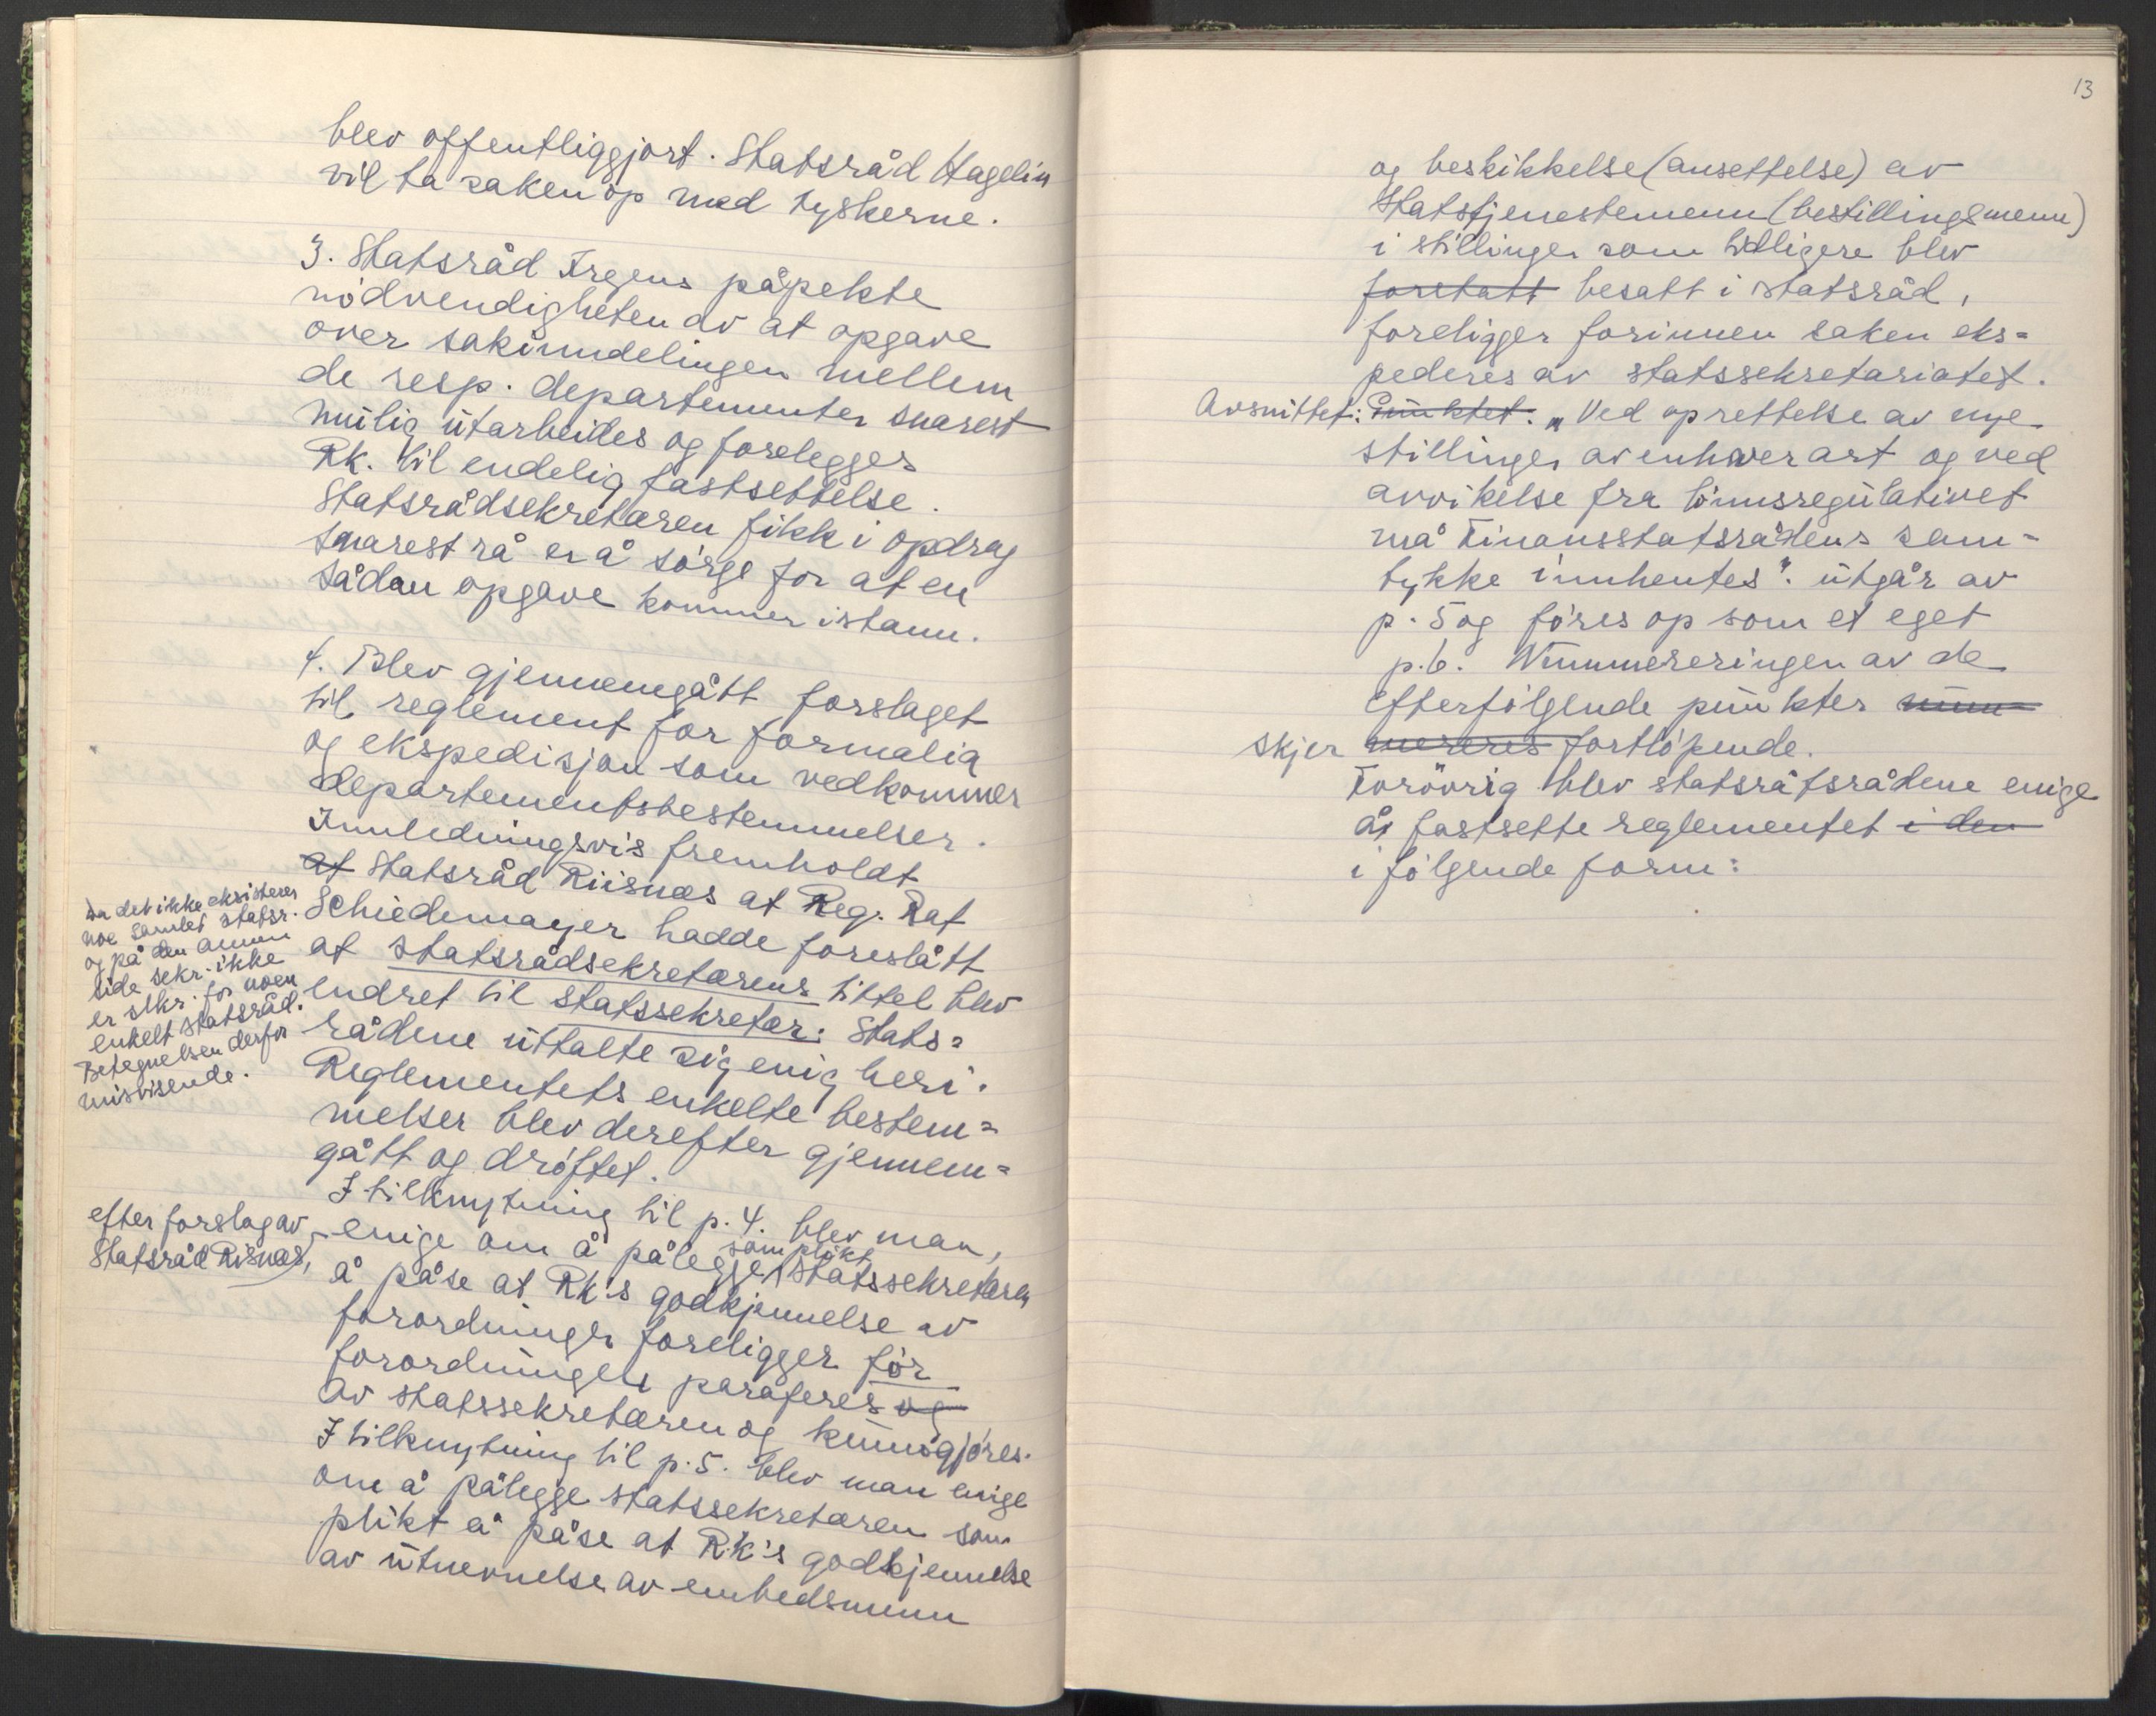 blev offentliggjort. Statsråd Hagelin
vil ta saken op med tyskerne.
3. Statsråd Irgens påpekte
nödvendigheten av at opgave
over sakinndelingen mellem
de resp. departementer snarest
mulig utarbeides og forelegges
Rk. til endelig fastsettelse.
Statsrådsekretæren fikk i opdrag
snarest rå er å sörge for at en
sådan opgave kommer istann.
4. Blev gjennemgått forslaget
til reglement for formalia
og ekspedisjon som vedkommer
departementsbestemmelser.
Innledningsvis fremholdt
at Statsråd Riisnæs at Reg. Rat
Schiedemayer hadde foreslått
at statsrådsekretærens tittel blev
endret til statssekretær: Stats=
rådene uttalte sig enig heri.
da det ikke eksisterer
noe samlet statsr.
og på den annen
side sekr. ikke
er sekr. for noen
enkelt statsråd.
Betegnelsen derfor
misvisende.
Reglementets enkelte bestem=
melser blev derefter gjennem=
gått og dröftet.
I tilknytning til p. 4. blev man,
efter forslag av
Statsråd Risnæs,
enige om å pålegge statssekretæren
som plikt
å påse at Rk's godkjennelse av
forordninger foreligger för
forordningen paraferes og
av statssekretæren og kunngjöres.
I tilknytning til p. 5. blev man enige
om å pålegge statssekretæren som
plikt å påse at Rk's godkjennelse
av utnevnelse av embedsmenn
13
og beskikkelse (ansettelse) av
Statstjenestemenn (bestillingsmenn)
i stillinger som tidligere blev
foretatt besatt i statsråd,
foreligger forinnen saken eks=
pederes av statssekretariatet.
Avsnittet: Punktet: "Ved oprettelse av nye
stillinger av enhver art og ved
avvikelse fra lönnsregulativet
må Finansstatsrådens sam=
tykke innhentes". utgår av
p. 5 og föres op som et eget
p. 6. Nummereringen av de
efterfölgende punkter num=
skjer mereres fortlöpende.
Forövrig blev statsråtsrådene enige
å fastsette reglementet i den
i fölgende form: